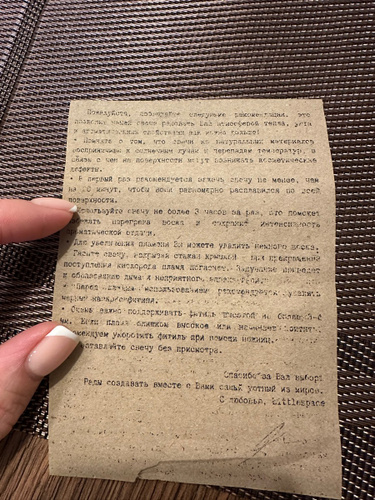 Пожалуйста, соблюдайте следующие рекомендации, это
позволит нашей свече радовать Вас атмосферой тепла, уюта
и ароматическими свойствами как можно дольше!
• Помните о том, что свечи из натуральных материалов
восприимчивы к солнечным лучам и перепадам температур, в
связи с чем на поверхности могут возникать косметические
дефекты.
• В первый раз рекомендуется палить свечу не менее, чем
на 20 минут, чтобы воск равномерно расплавился по всей
поверхности.
Используйте свечу не более 3 часов за раз, это поможет
перегрева воска и сохранит интенсивность
ароматической отдачи.
Для увеличения пламени Вы можете удалить немного воска.
Гасите свечу, накрывая стакан крышкой. При прекращении
поступления кислорода пламя погаснет. Задувание приводит
к образованию дыма и неприятного запаха.
Перед использованием рекомендуется удалить
Очень важно поддерживать фитиль высотой не больше 3-4
мм. Если пламя слишком высокое или начинает коптить,
рекомендуем укоротить фитиль при помощи ножниц.
оставляйте свечу без присмотра.
Спасибо за Ваш выбор!
Рады создавать вместе с Вами самый уютный из миров.
С любовью, Littlspace